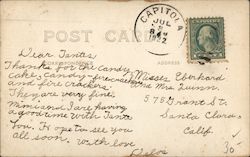 POST CARD
CAPITOLA
JUL
5
8 AM
1922
Dear Tantes
Thanks for the candy
cake, candy - firecrackers
and fire crackers.
They are very fine.
Mimi and I are having
a good time with Tante
Lou. Hope to see you
all soon. with love
Misses Eberhard
and Mrs. Quinn.
575 Grant St.
Santa Clara,
Calif.
30